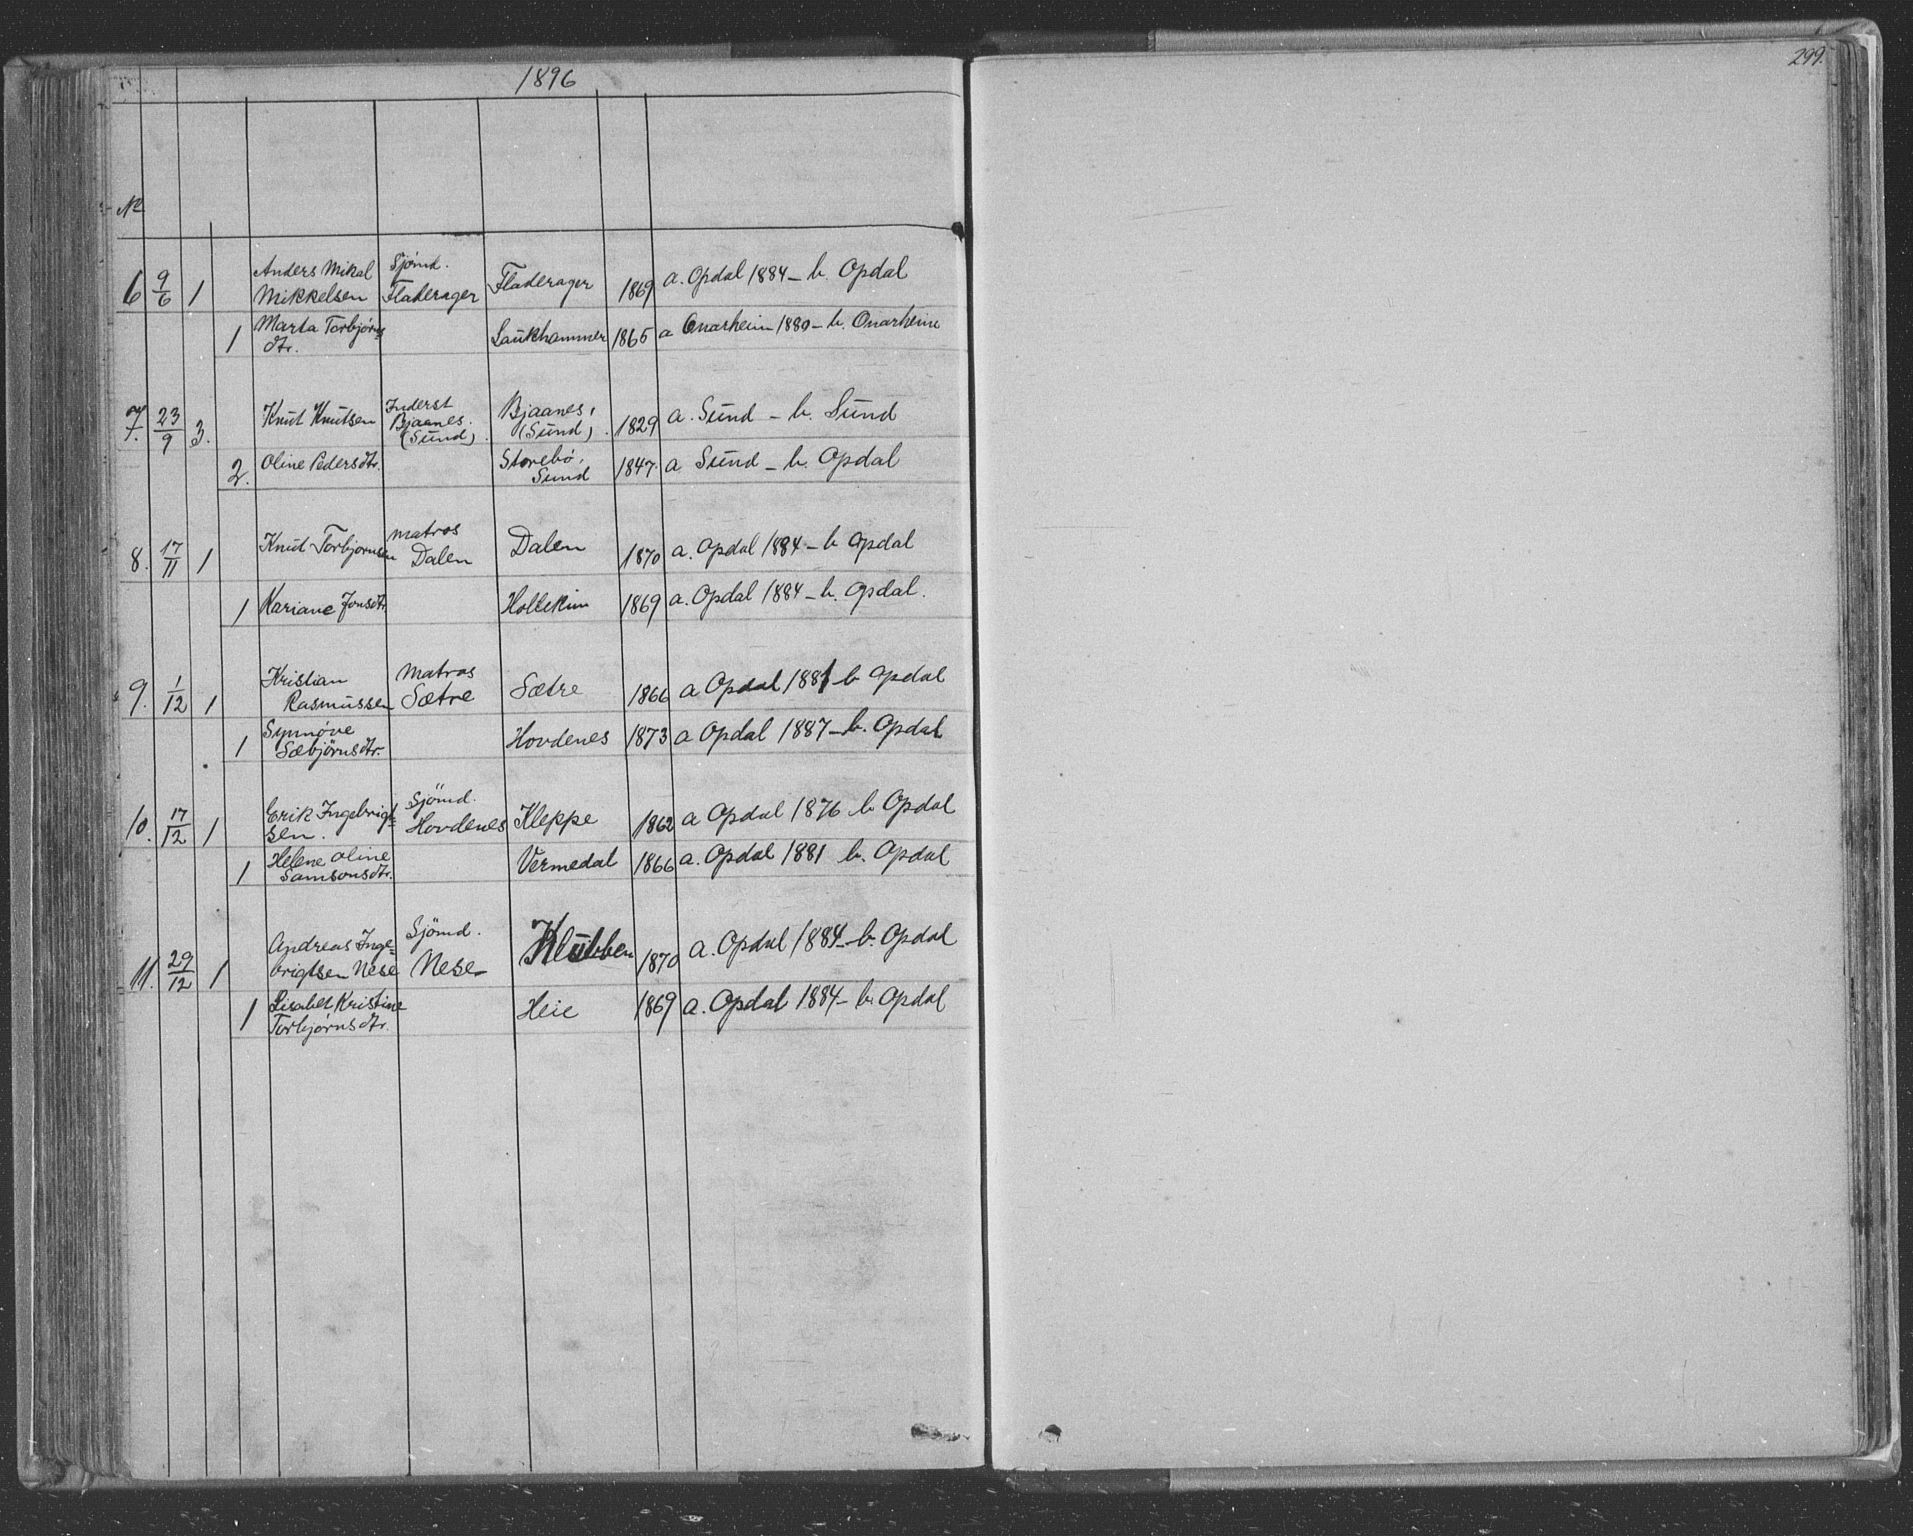 1896
299.
No
6 9/6 1 Anders Mikal Mikkelsen Sjömd. Fladerager Fladerager 1869 a. Opdal 1884 - b. Opdal
1 Marta Torbjörnsdtr. Laukhammer 1865 a Onarheim 1880 - b. Onarheim
7. 23/9 3. Knut Knutsen Inderst Bjaanes. (Sund). Bjaanes, (Sund). 1829 a. Sund - b. Sund
2. Oline Pedersdtr. Storebö, Sund 1847. a Sund - b. Opdal
8. 17/11 1 Knut Torbjornsen matros Dalen Dalen 1870 a. Opdal 1884 - b Opdal
1 Kariane Jonsdtr. 1869 a. Opdal 1884 - b. Opdal.
9. 1/12 1 Kristian Rasmussen Matros Sætre Sætre 1866 a Opdal 1881 b Opdal
1 Synnøve Sæbjörnsdtr. Hovdenes 1873 a Opdal 1887 - b. Opdal
10. 17/12 1 Erik Ingebrigtsen. Sjömd. Hovdenes Kleppe 1862 a Opdal 1876 b Opdal
1 Helene Oline Samsonsdtr. Vermedal 1866 a. Opdal 1881 b. Opdal
11. 29/12 1 Andreas Ingebrigtsen Nese Sjömd. Nese Klubben 1870 a. Opdal 1884 - b. Opdal
1 Lisabet Kristine Torbjørnsdtr. Heie 1869 a. Opdal 1884 - b. Opdal